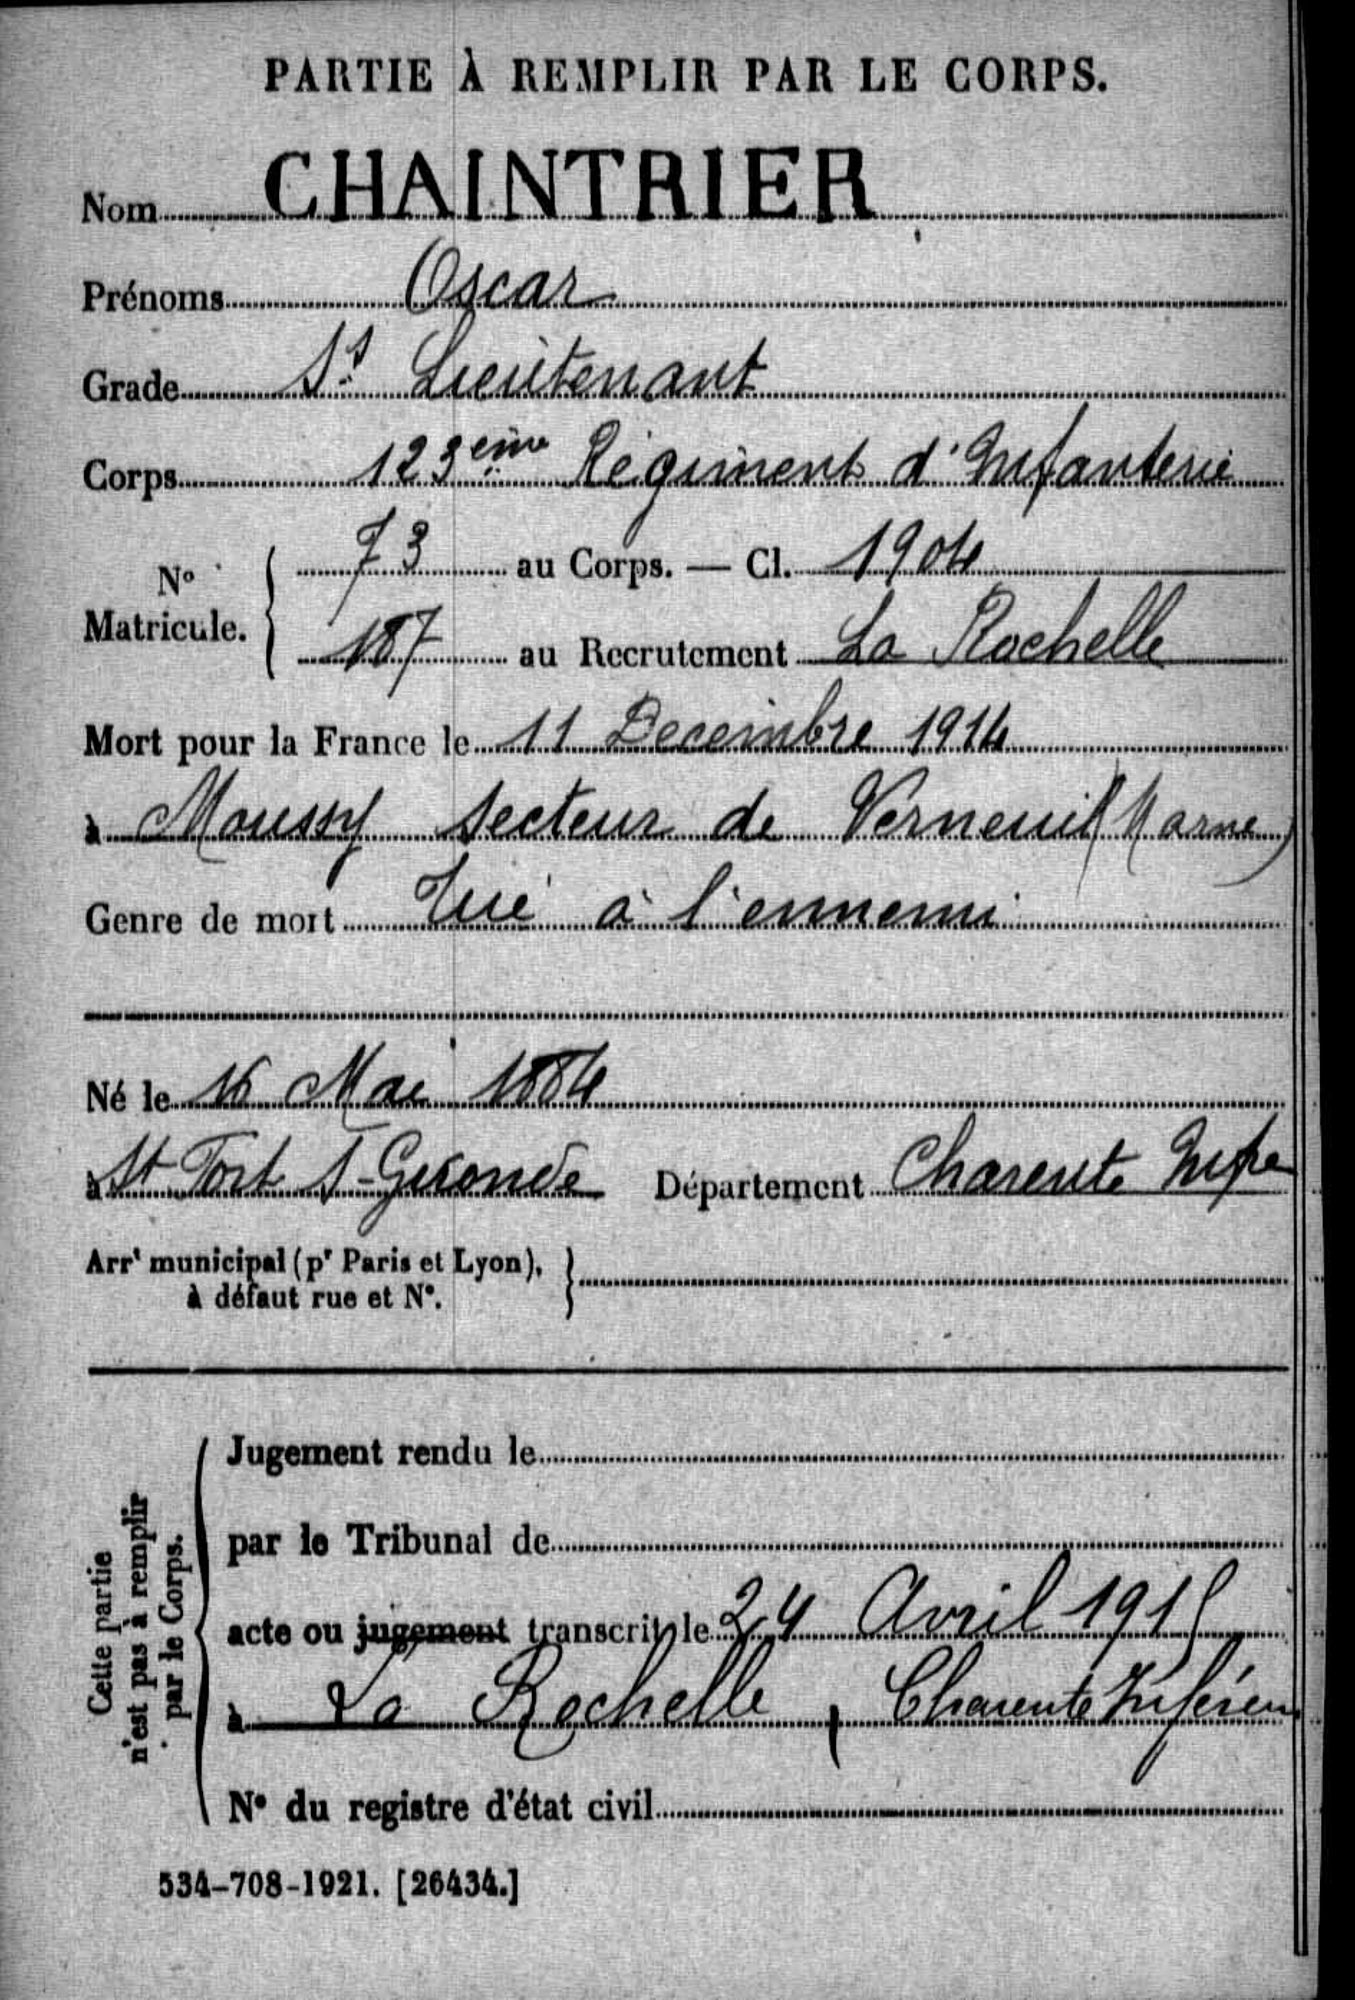 PARTIE À REMPLIR PAR LE CORPS.
Nom CHAINTRIER
Prénoms Oscar
Grade Ss Lieutenant
Corps 123ème Régiment d'Infanterie
N° Matricule. 73 au Corps. — Cl. 1904
187 au Recrutement La Rochelle
Mort pour la France le 11 Decembre 1914
à Moussy secteur de Verneuil (Marne)
Genre de mort Tué à l'ennemi
Né le 16 Mai 1884
à St Fort s-Gironde Département Charente Infre
Arrt municipal (pr Paris et Lyon),
à défaut rue et N°.
Cette partie
n'est pas à remplir
par le Corps.
Jugement rendu le
par le Tribunal de
acte ou jugement transcrit le 24 Avril 1915
à La Rochelle, Charente Inférieu
N° du registre d'état civil
534-708-1921. [26434.]